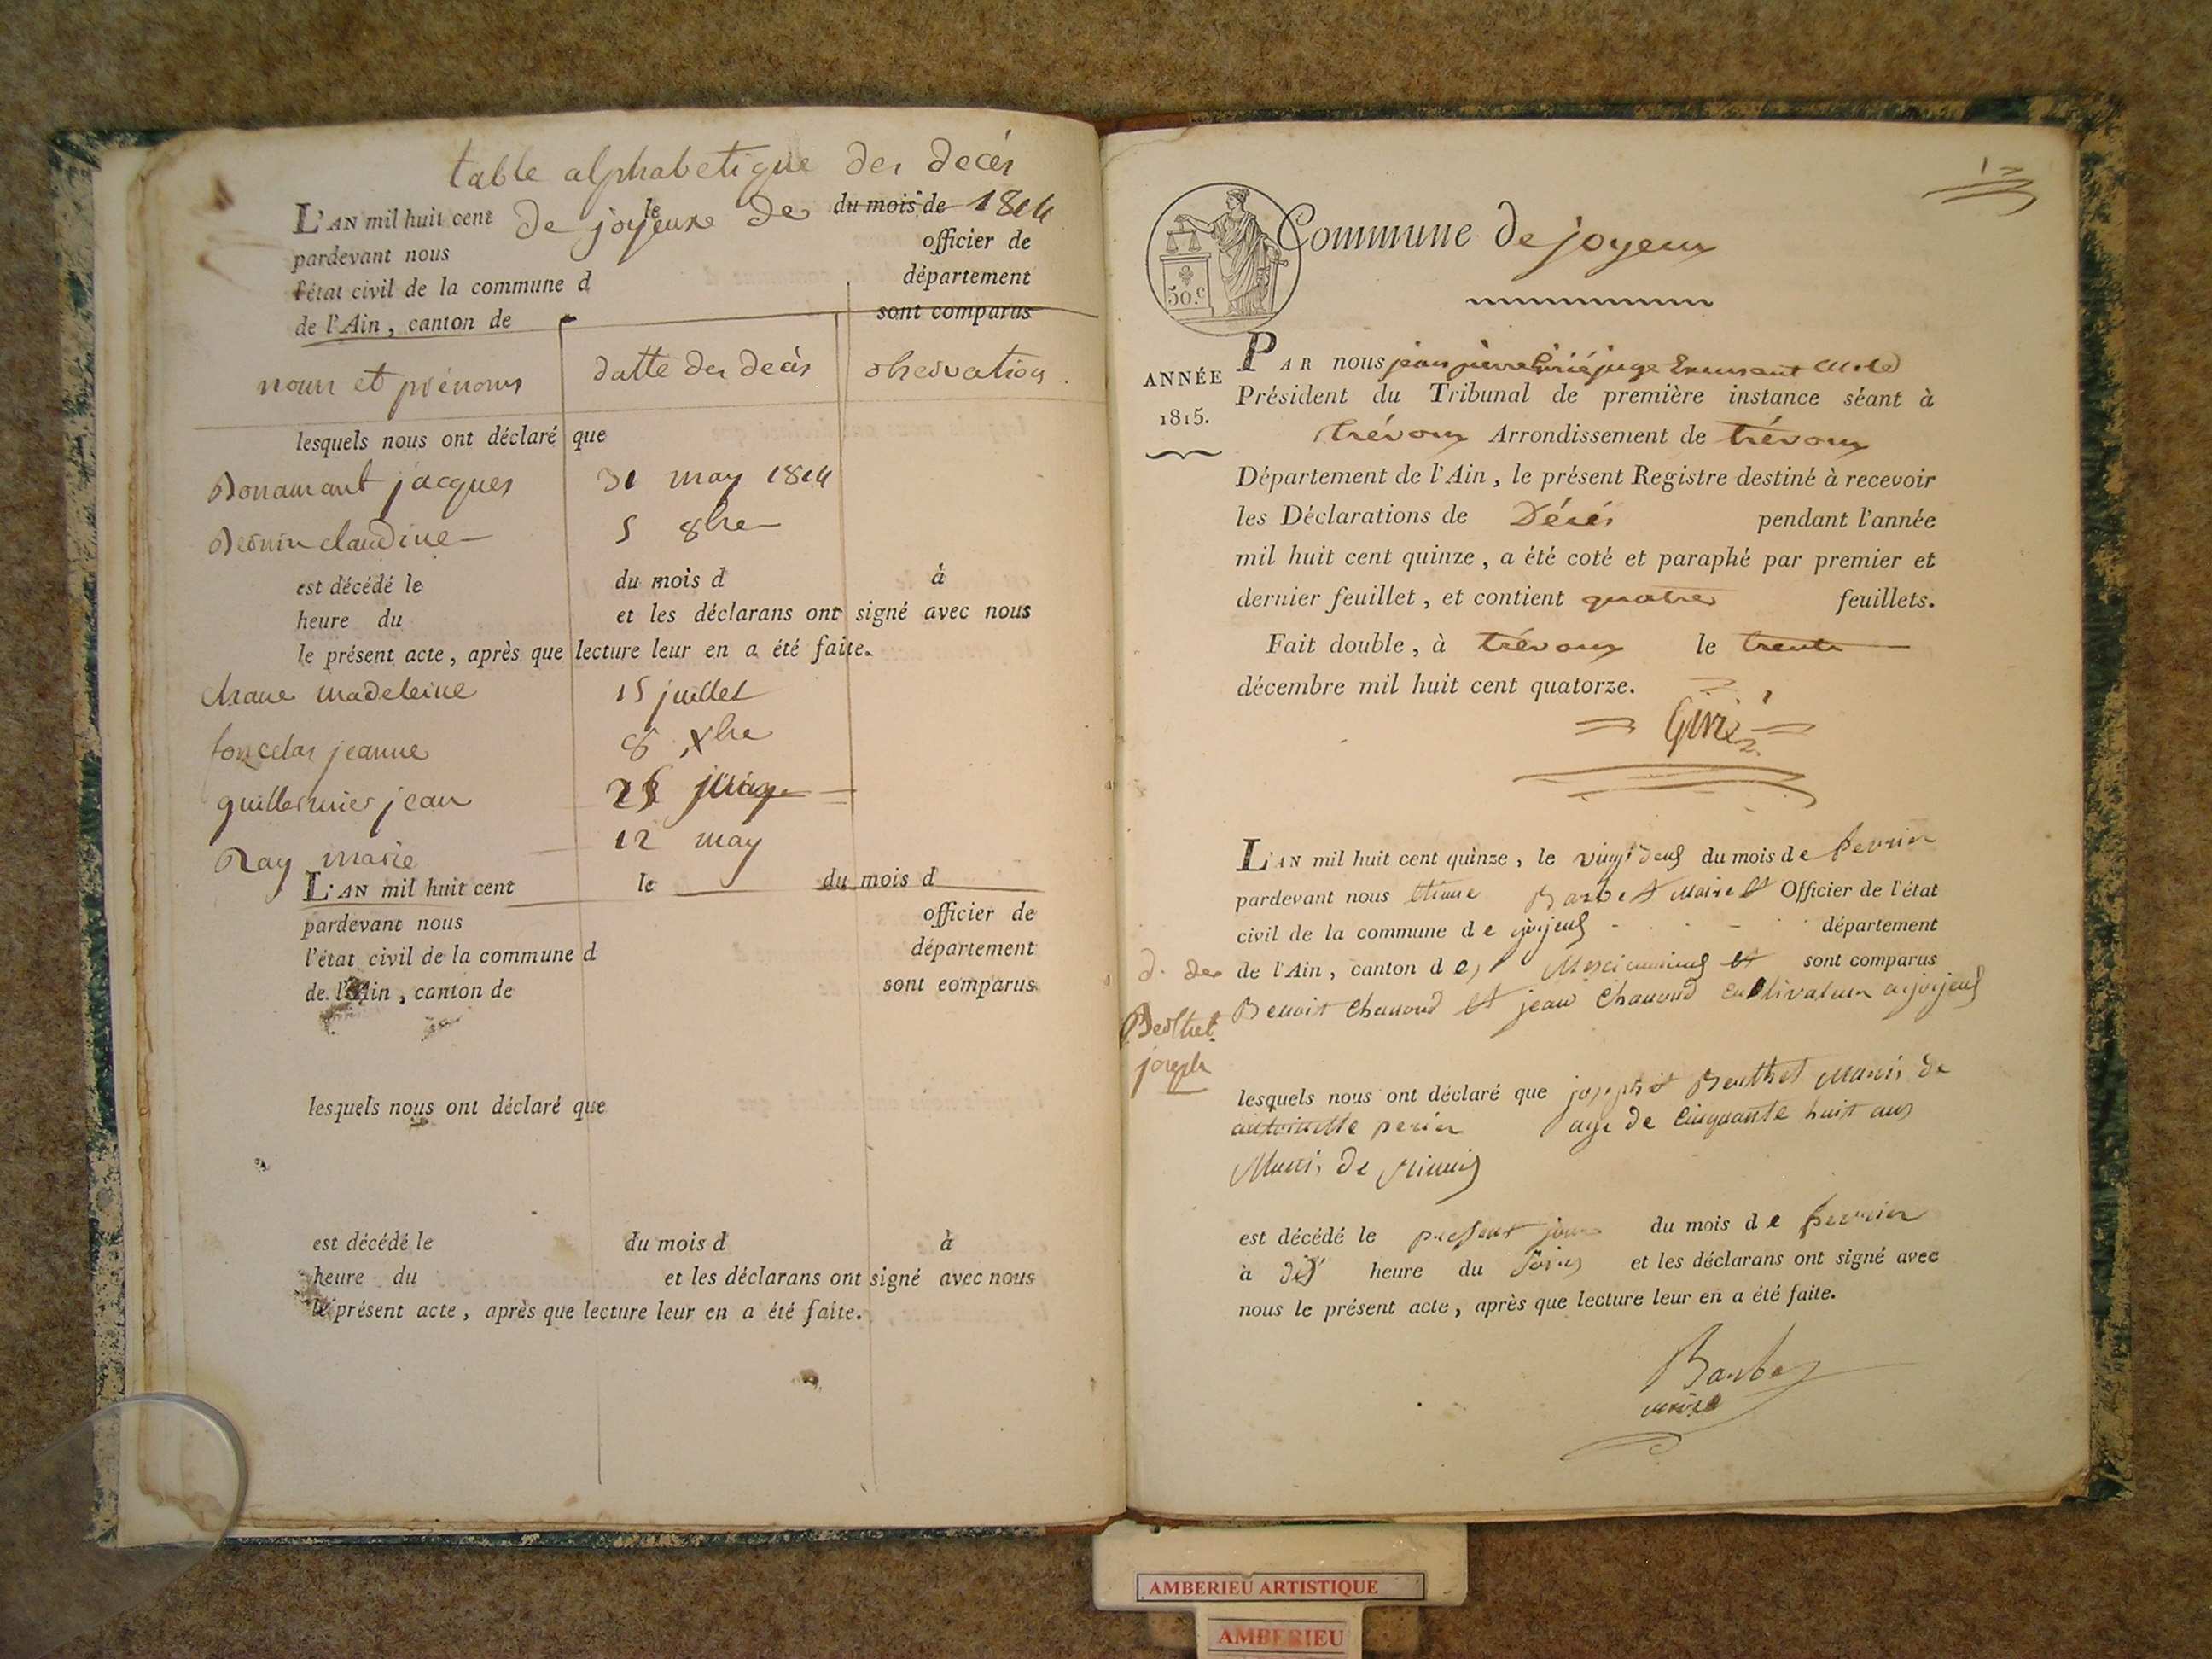 table alphabetique des decés
L'AN mil huit cent de joyeux le de du mois de 1814
pardevant nous officier de
l'état civil de la commune d département
de l'Ain, canton de sont comparus
noms et prénoms datte des decès observation
lesquels nous ont déclaré que
Bonamant jacques 31 may 1814
claudine 5 8bre
est décédé le du mois d à
heure du et les déclarans ont signé avec nous
le présent acte, après que lecture leur en a été faite.
madeleine 15 juillet
jeanne 8 Xbre
guillermier jean
Ray marie 12 may
L'AN mil huit cent le du mois d
pardevant nous officier de
l'état civil de la commune d département
de l'Ain, canton de sont comparus
lesquels nous ont déclaré que
est décédé le du mois d à
heure du et les déclarans ont signé avec nous
le présent acte, après que lecture leur en a été faite.
1
50.c
Commune de joyeux
ANNÉE
1815.
PAR nous jean pierre juge
Président du Tribunal de première instance séant à
trévoux Arrondissement de trévoux
Département de l'Ain, le présent Registre destiné à recevoir
les Déclarations de Décés pendant l'année
mil huit cent quinze, a été coté et paraphé par premier et
dernier feuillet, et contient quatre feuillets.
Fait double, à trévoux le trente
décembre mil huit cent quatorze.
L'AN mil huit cent quinze, le vingt deux du mois de fevrier
pardevant nous Barbet Maire et Officier de l'état
civil de la commune de département
de l'Ain, canton de sont comparus
Benoit Chanoud et jean Chanoud
d. des
Berthet
joseph
lesquels nous ont déclaré que Berthet Maris de
antoinette perin age de Cinquante huit ans
est décédé le present jour du mois de fevrier
à heure du et les déclarans ont signé avec
nous le présent acte, après que lecture leur en a été faite.
Barbet
maire
AMBERIEU ARTISTIQUE
AMBERIEU